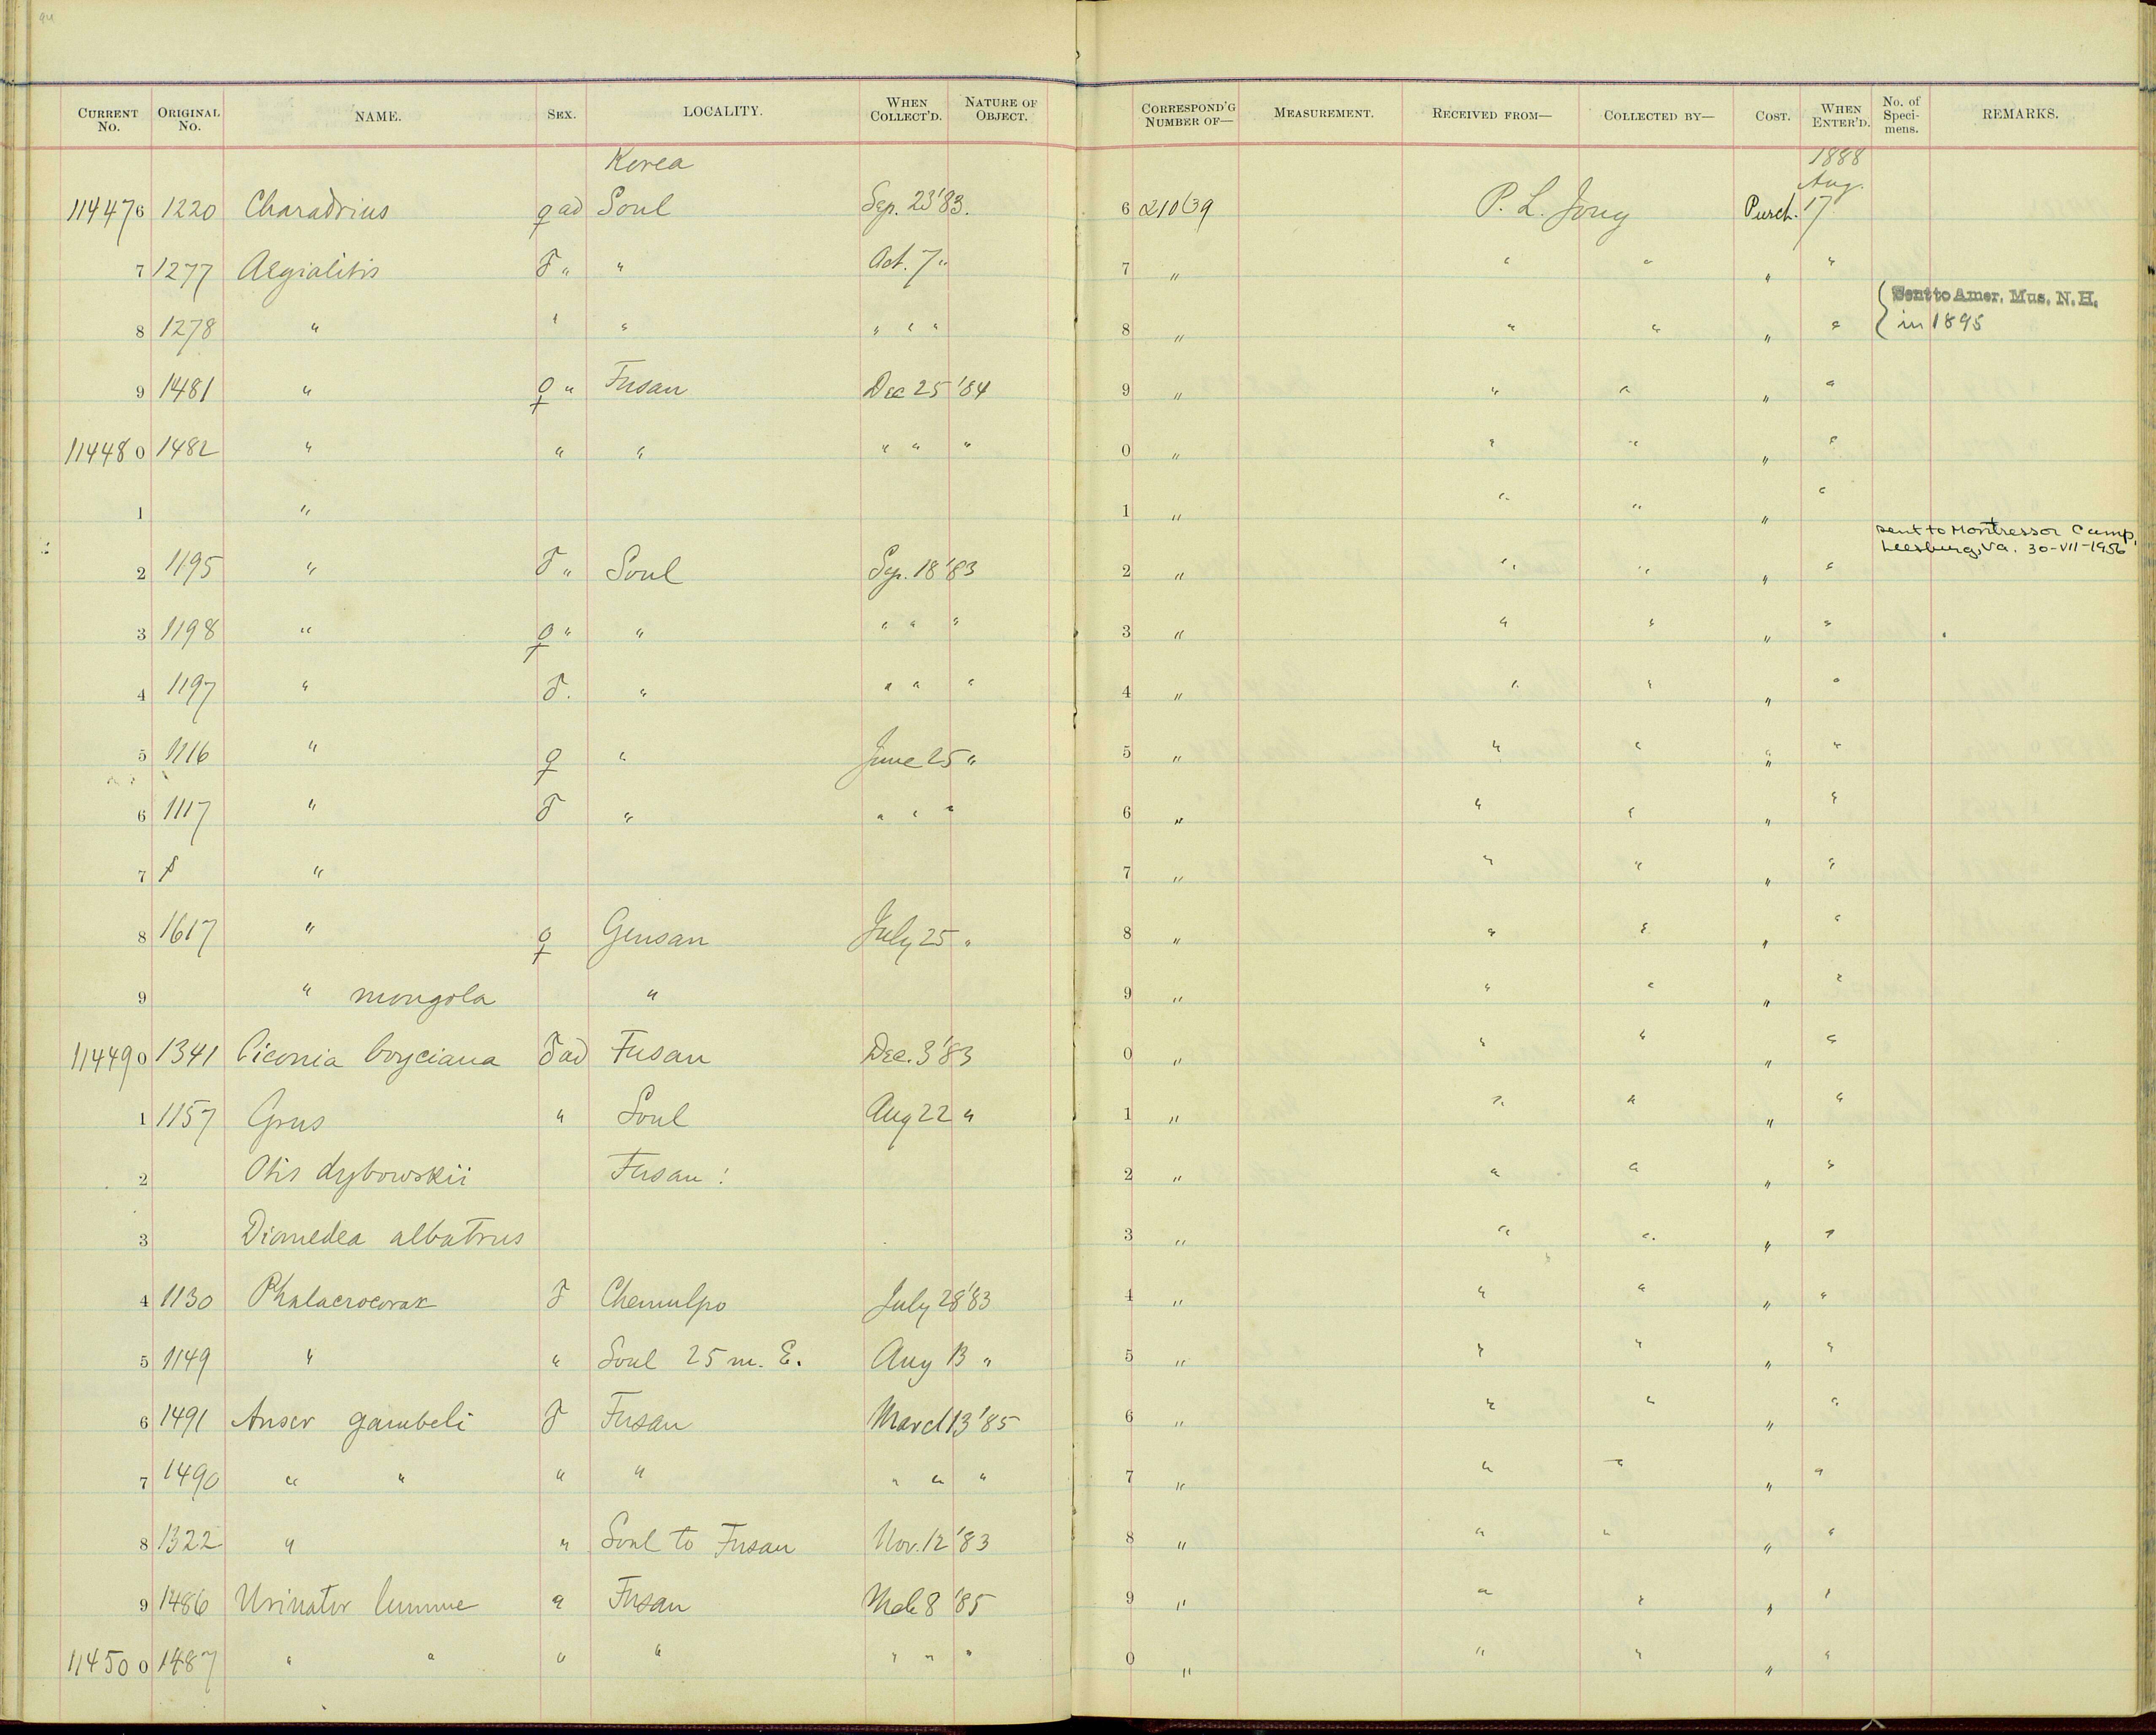 94
CURRENT No. ORIGINAL No. NAME. SEX. LOCALITY. WHEN COLLECT'D. NATURE OF OBJECT. CORRESPOND'G NUMBER OF— MEASUREMENT. RECEIVED FROM— COLLECTED BY— COST. WHEN ENTER'D. No. of Speci-mens. REMARKS.
Korea 1888
Aug.
114476 1220 Charadrius ♀ ad Soul Sep. 23 '83. 6 21039 P. L. Jouy Purch. 17
7 1277 Aegialitis ♂ " " Oct. 7 " 7 " " " " "
8 1278 " " " " " " 8 " " " " " { Sent to Amer. Mus. N. H.
in 1895
9 1481 " ♀ " Fusan Dec 25 '84 9 " " " " "
114480 1482 " " " " " " 0 " " " " "
1 " 1 " " " " "
2 1195 " ♂ " Soul Sep. 18 '83 2 " " " " " sent to Montressor Camp,
Leesburg, Va. 30-VII-1956
3 1198 " ♀ " " " " " 3 " " " " "
4 1197 " ♂. " " " " 4 " " " " "
5 1116 " ♀ " June 25 " 5 " " " " "
6 1117 " ♂ " " " " 6 " " " " "
7 " 7 " " " " "
8 1617 " ♀ Gensan July 25 " 8 " " " " "
9 " mongola " 9 " " " " "
114490 1341 Ciconia boyciana ♂ ad Fusan Dec. 3 '83 0 " " " " "
1 1157 Grus " Soul Aug 22 " 1 " " " " "
2 Otis dybowskii Fusan ! 2 " " " " "
3 Diomedea albatrus 3 " " " " "
4 1130 Phalacrocorax ♂ Chemulpo July 28 '83 4 " " " " "
5 1149 " " Soul 25 m. E. Aug 13 " 5 " " " " "
6 1491 Anser gambeli ♂ Fusan March 13 '85 6 " " " " "
7 1490 " " " " " " " 7 " " " " "
8 1322 " " Soul to Fusan Nov. 12 '83 8 " " " " "
9 1486 Urinator lumme " Fusan Mch 8 '85 9 " " " " "
114500 1487 " " " " " " " 0 " " " " "